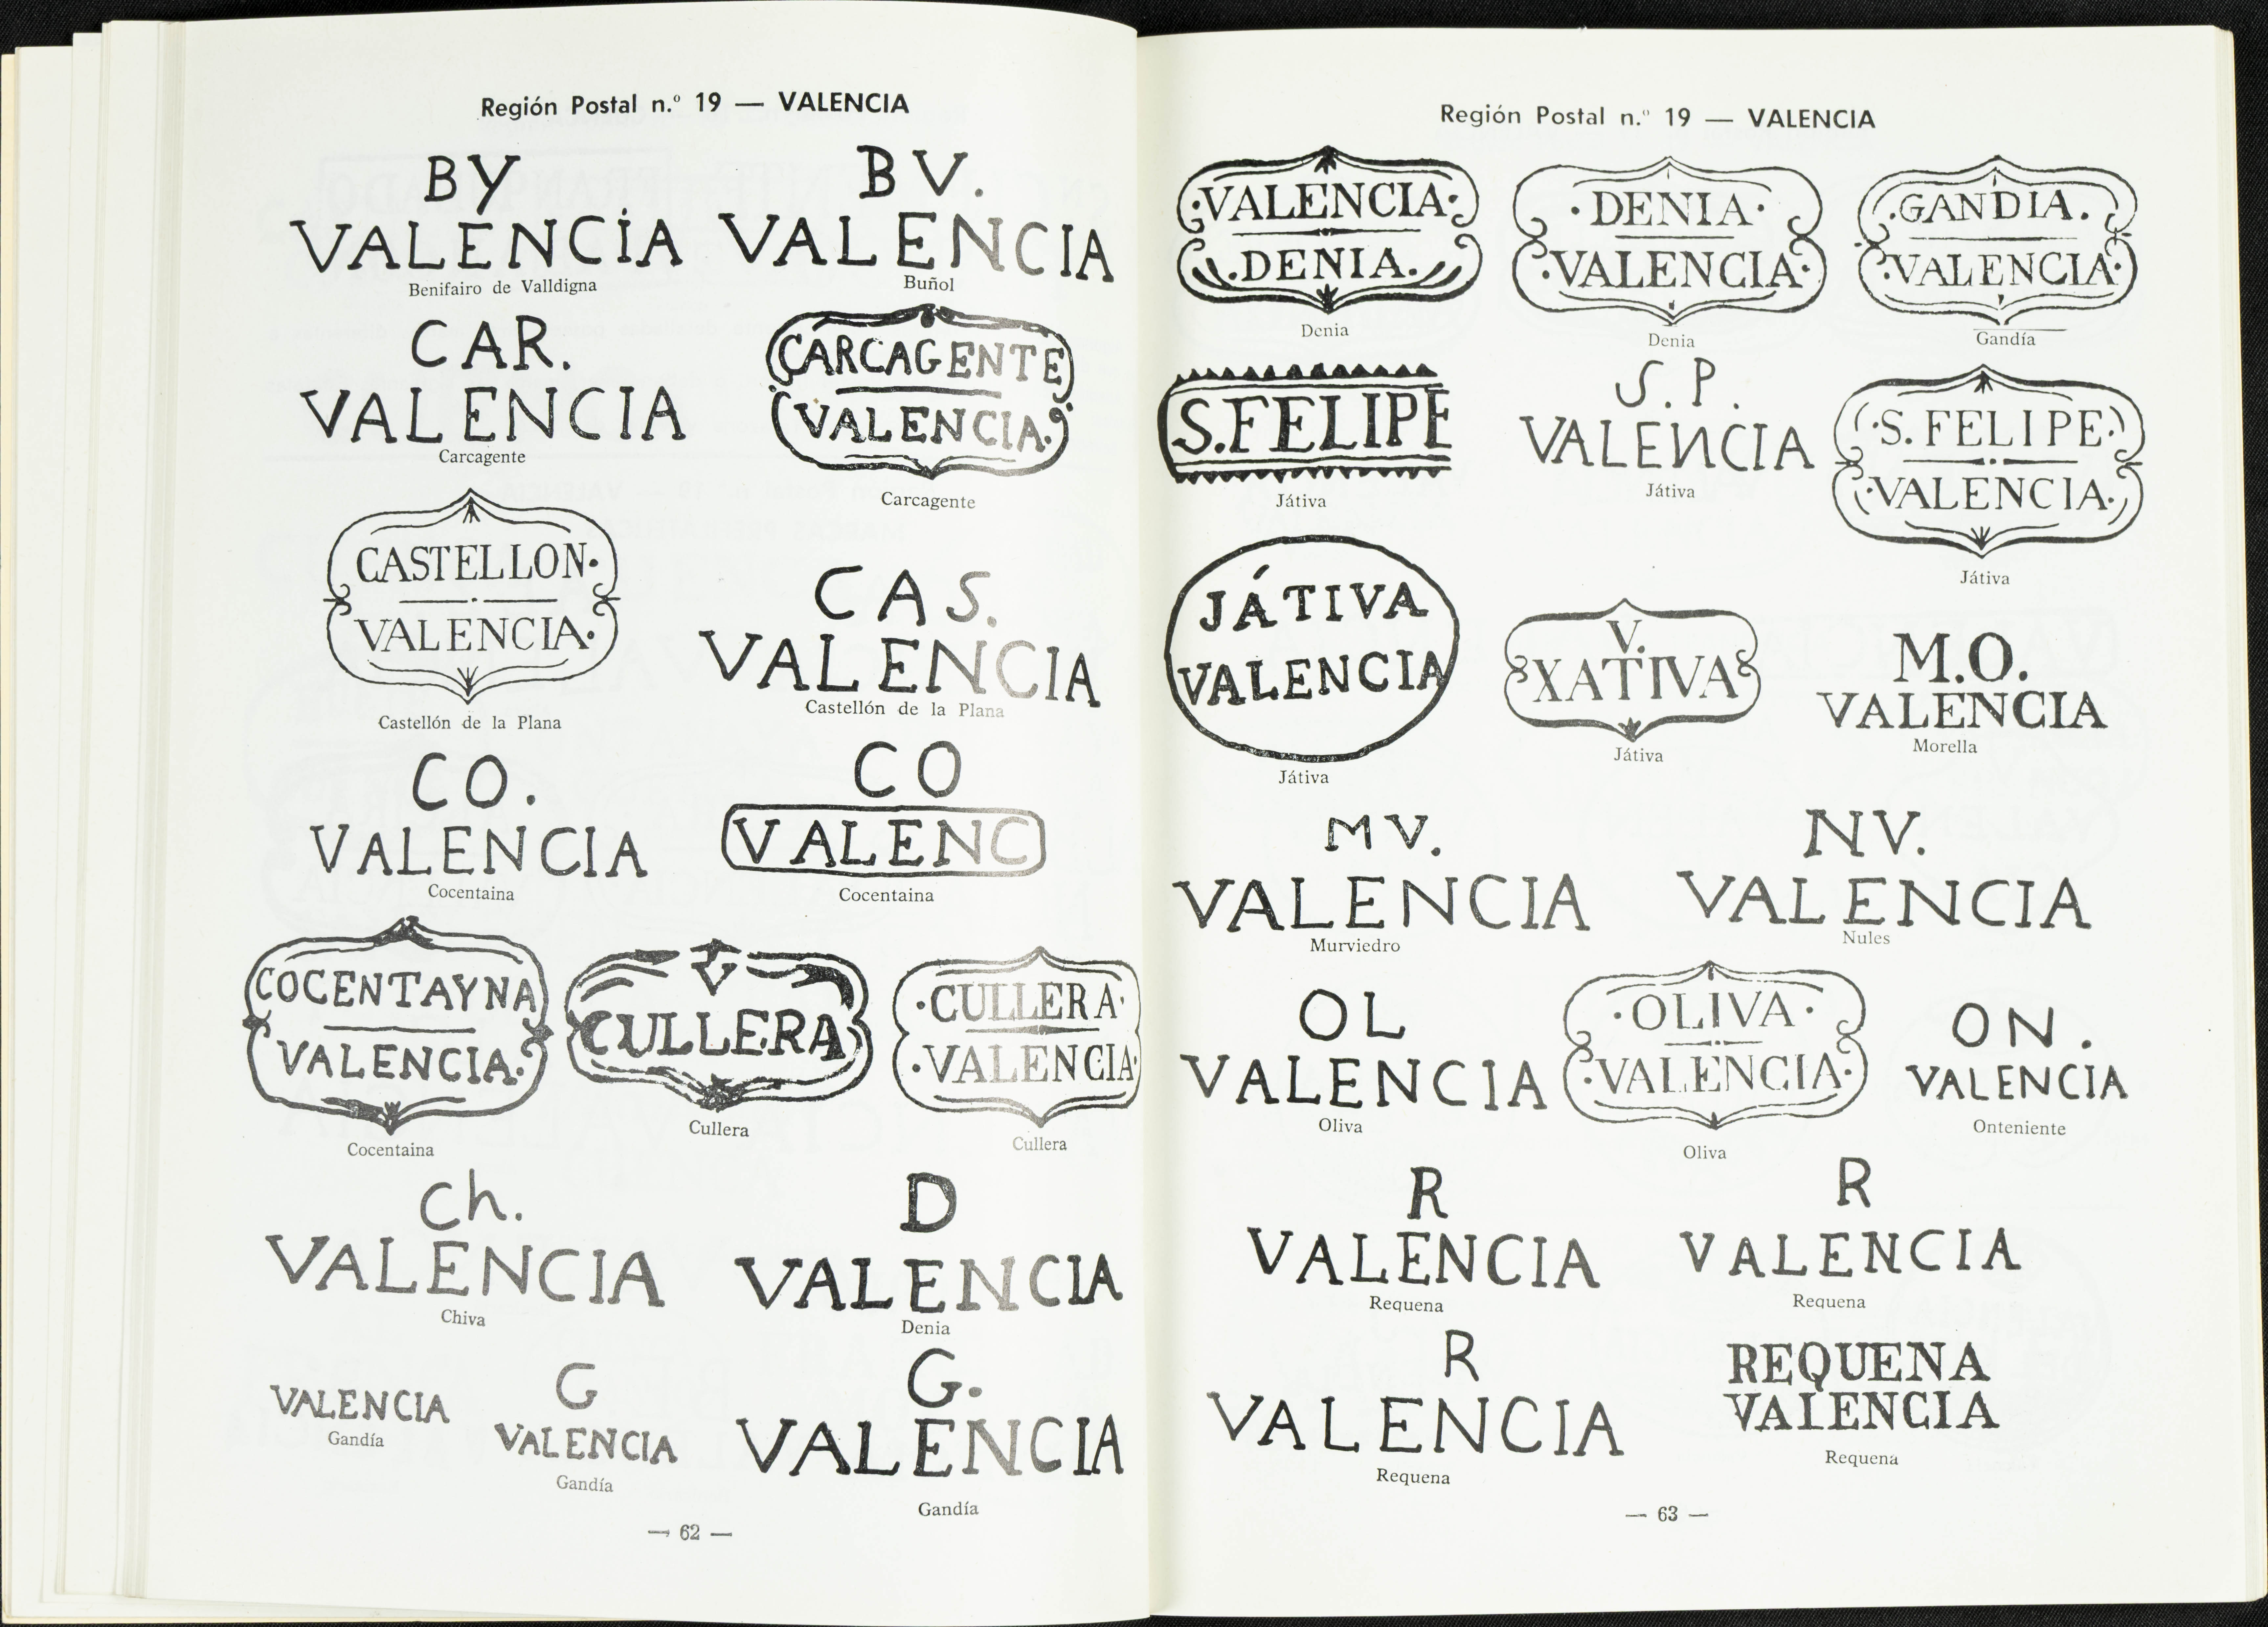 Región Postal n.º 19 — VALENCIA
BY
VALENCIA
Benifairo de Valldigna
BV.
VALENCIA
Buñol
CAR.
VALENCIA
Carcagente
CARCAGENTE
VALENCIA.
Carcagente
CASTELLON·
VALENCIA·
Castellón de la Plana
CAS.
VALENCIA
Castellón de la Plana
CO.
VALENCIA
Cocentaina
CO
VALENC
Cocentaina
COCENTAYNA
VALENCIA·
Cocentaina
V
CULLERA
Cullera
·CULLERA·
·VALENCIA·
Cullera
Ch.
VALENCIA
Chiva
D
VALENCIA
Denia
VALENCIA
Gandía
G
VALENCIA
Gandía
G.
VALENCIA
Gandía
— 62 —
Región Postal n.º 19 — VALENCIA
·VALENCIA·
.DENIA.
Denia
·DENIA·
·VALENCIA·
Denia
.GANDIA.
·VALENCIA·
Gandía
S.FELIPE
Játiva
S.P.
VALENCIA
Játiva
·S.FELIPE·
·VALENCIA·
Játiva
JÁTIVA
VALENCIA
Játiva
V.
XATIVA
Játiva
M.O.
VALENCIA
Morella
MV.
VALENCIA
Murviedro
NV.
VALENCIA
Nules
OL
VALENCIA
Oliva
·OLIVA·
·VALENCIA·
Oliva
ON.
VALENCIA
Onteniente
R
VALENCIA
Requena
R
VALENCIA
Requena
R
VALENCIA
Requena
REQUENA
VALENCIA
Requena
— 63 —